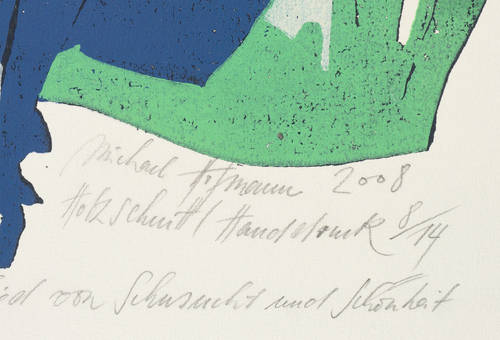 Michael Hofmann 2008
Holzschnitt Handdruck 8/14
von Sehnsucht und Schönheit